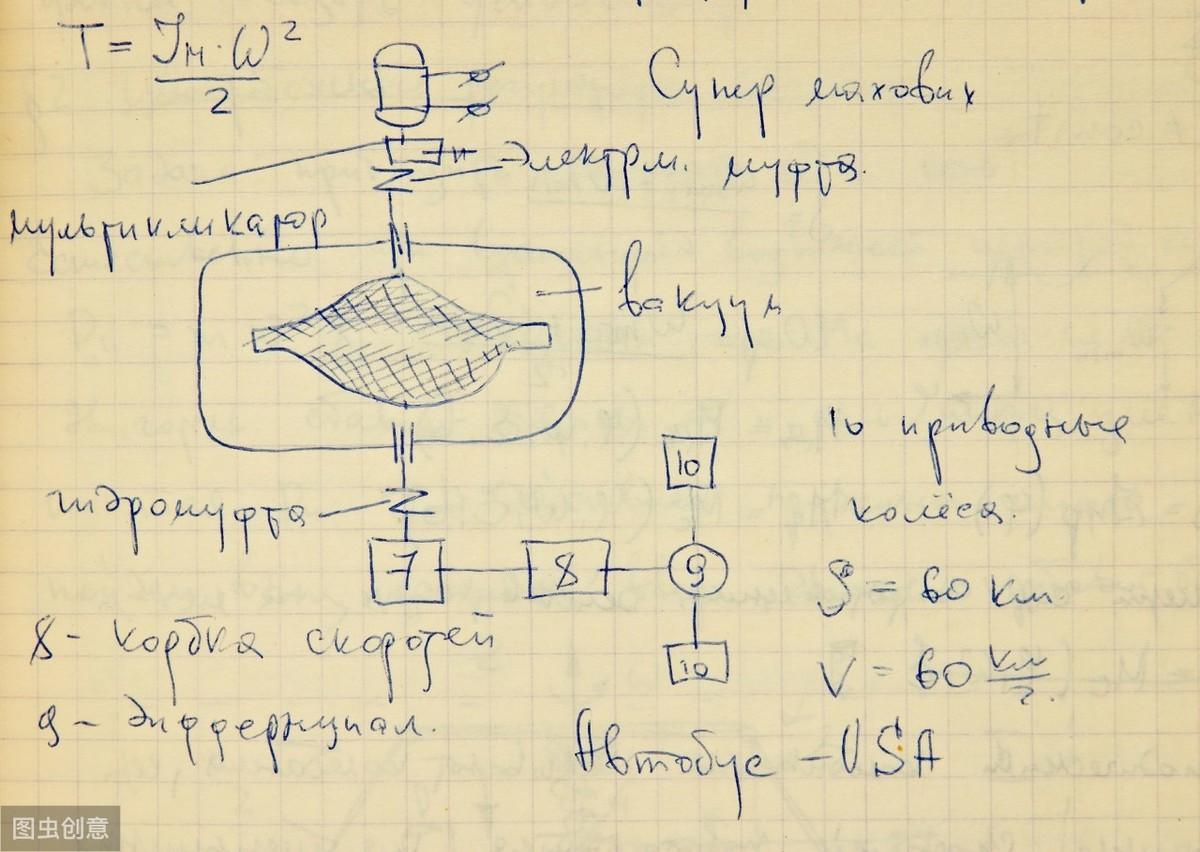 T = Jм·ω²
2
Супер маховик
Электрм. муфта.
мультипликатор
вакуум
10 приводные
колёса.
10
гидромуфта
7
8
9
S = 60 км
8 - корбка скоротей
10
V = 60 км/г.
9 - диффернциал.
Автобус - USA
图虫创意